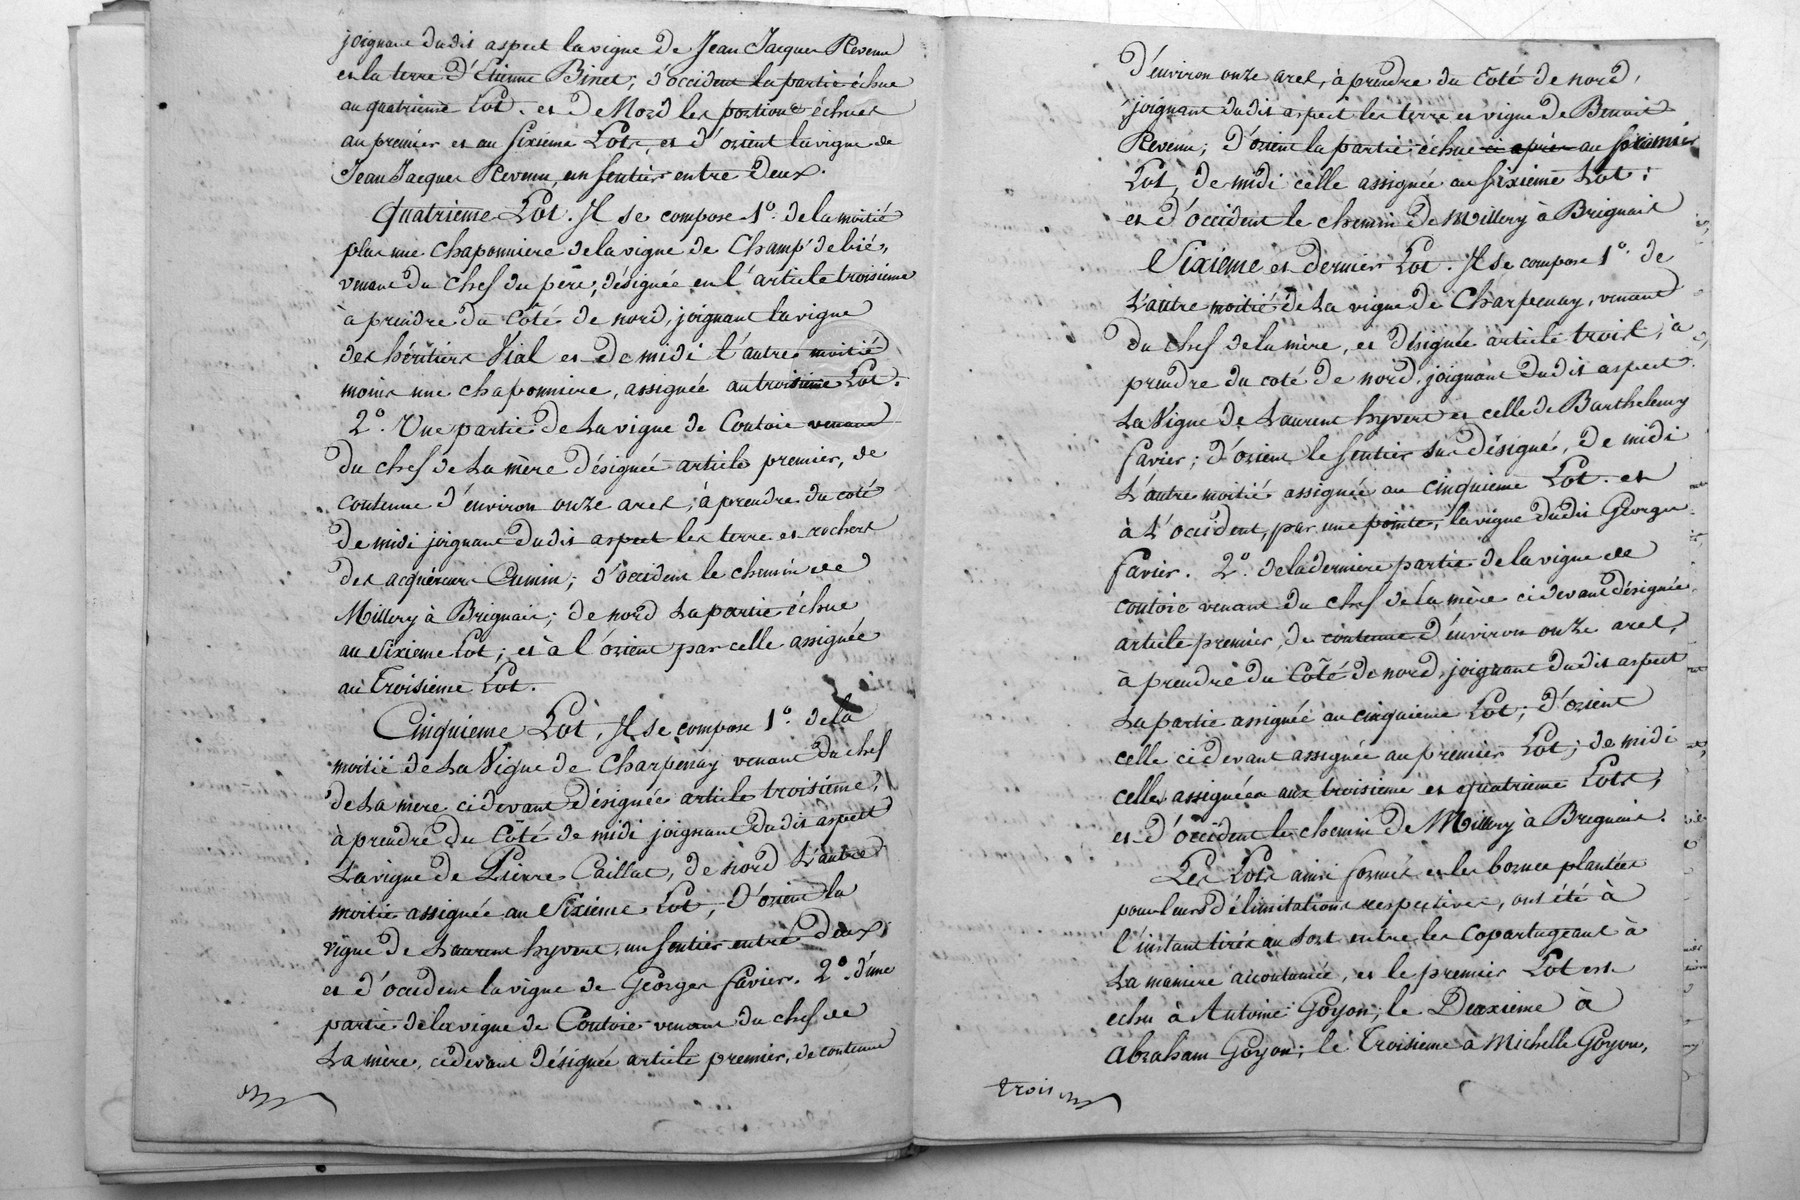 joignant dudit aspect la vigne de Jean Jacques Revenu
et la terre d'Etienne Binet; d'occident la partie échue
au quatrieme Lot. et de Nord les portions échues
au premier et au sixieme Lots, et d'orient la vigne de
Jean Jacques Revenu, un sentier entre deux.
Quatrieme Lot. Il se compose 1º. de la moitié
plus une chaponniere de la vigne de Champ de bié,
venant du chef du père, désignée en l'article troisieme
à prendre du Côté de nord, joignant la vigne
des héritiers Vial et de midi l'autre moitié
moins une chaponniere, assignée au troisieme Lot.
2º. Une partie de la vigne de Coutoie venant
du chef de la mère désignée article premier, de
contenue d'environ onze ares, à prendre du coté
de midi joignant dudit aspect les terre et rochers
des acquéreurs Cumin; d'occident le chemin de
Millery à Brignais; de nord la partie échue
au Sixieme Lot; et à l'orient par celle assignée
au Troisieme Lot.
Cinquieme Lot, Il se compose 1º. de la
moitié de La Vigne de Charpenay venant du chef
de la mere cidevant désignée article troisieme,
à prendre du Côté de midi joignant dudit aspect
la vigne de Pierre Caillat, de nord l'autre
moitié assignée au Sixieme Lot, d'orient la
vigne de Laurent hyvert, un sentier entre deux
et d'occident la vigne de Georges favier. 2º. d'une
partie de la vigne de Coutoie venant du chef de
la mère, cidevant désignée article premier, de contenue
d'environ onze ares, à prendre du Côté de nord,
joignant dudit aspect les terre et vigne de Benoit
Revenu; d'orient la partie échue ci après au premier
Lot, de midi celle assignée au sixieme Lot;
et d'occident le chemin de Millery à Brignais
Sixieme et dernier Lot. Il se compose 1º. de
L'autre moitié de La vigne de Charpenay, venant
du chef de la mère, et désignée article trois, à
prendre du coté de nord, joignant dudit aspect
La Vigne de Laurent hyvert et celle de Barthelemy
favier; d'orient le sentier sus désigné, de midi
L'autre moitié assignée au cinquieme Lot. et
à l'occident, par une pointe, la vigne dudit Georges
favier. 2º. de la derniere partie de la vigne de
coutoie venant du chef de la mère cidevant désignée
article premier, de contenue d'environ onze ares,
à prendre du Côté de nord, joignant dudit aspect
La partie assignée au cinquieme Lot; d'orient
celle cidevant assignée au premier Lot; de midi
celles assignées aux troisieme et quatrieme Lots,
et d'occident le chemin de Millery à Brignais.
Les Lots ainsi formés et les bornes plantées
pour leurs délimitations respectives, ont été à
l'instant tirés au sort entre les Copartageants à
La maniere accoutumée, et le premier Lot est
echu à Antoine Goyon; le Deuxieme à
Abraham Goyon; le Troisieme à Michelle Goyon,
trois